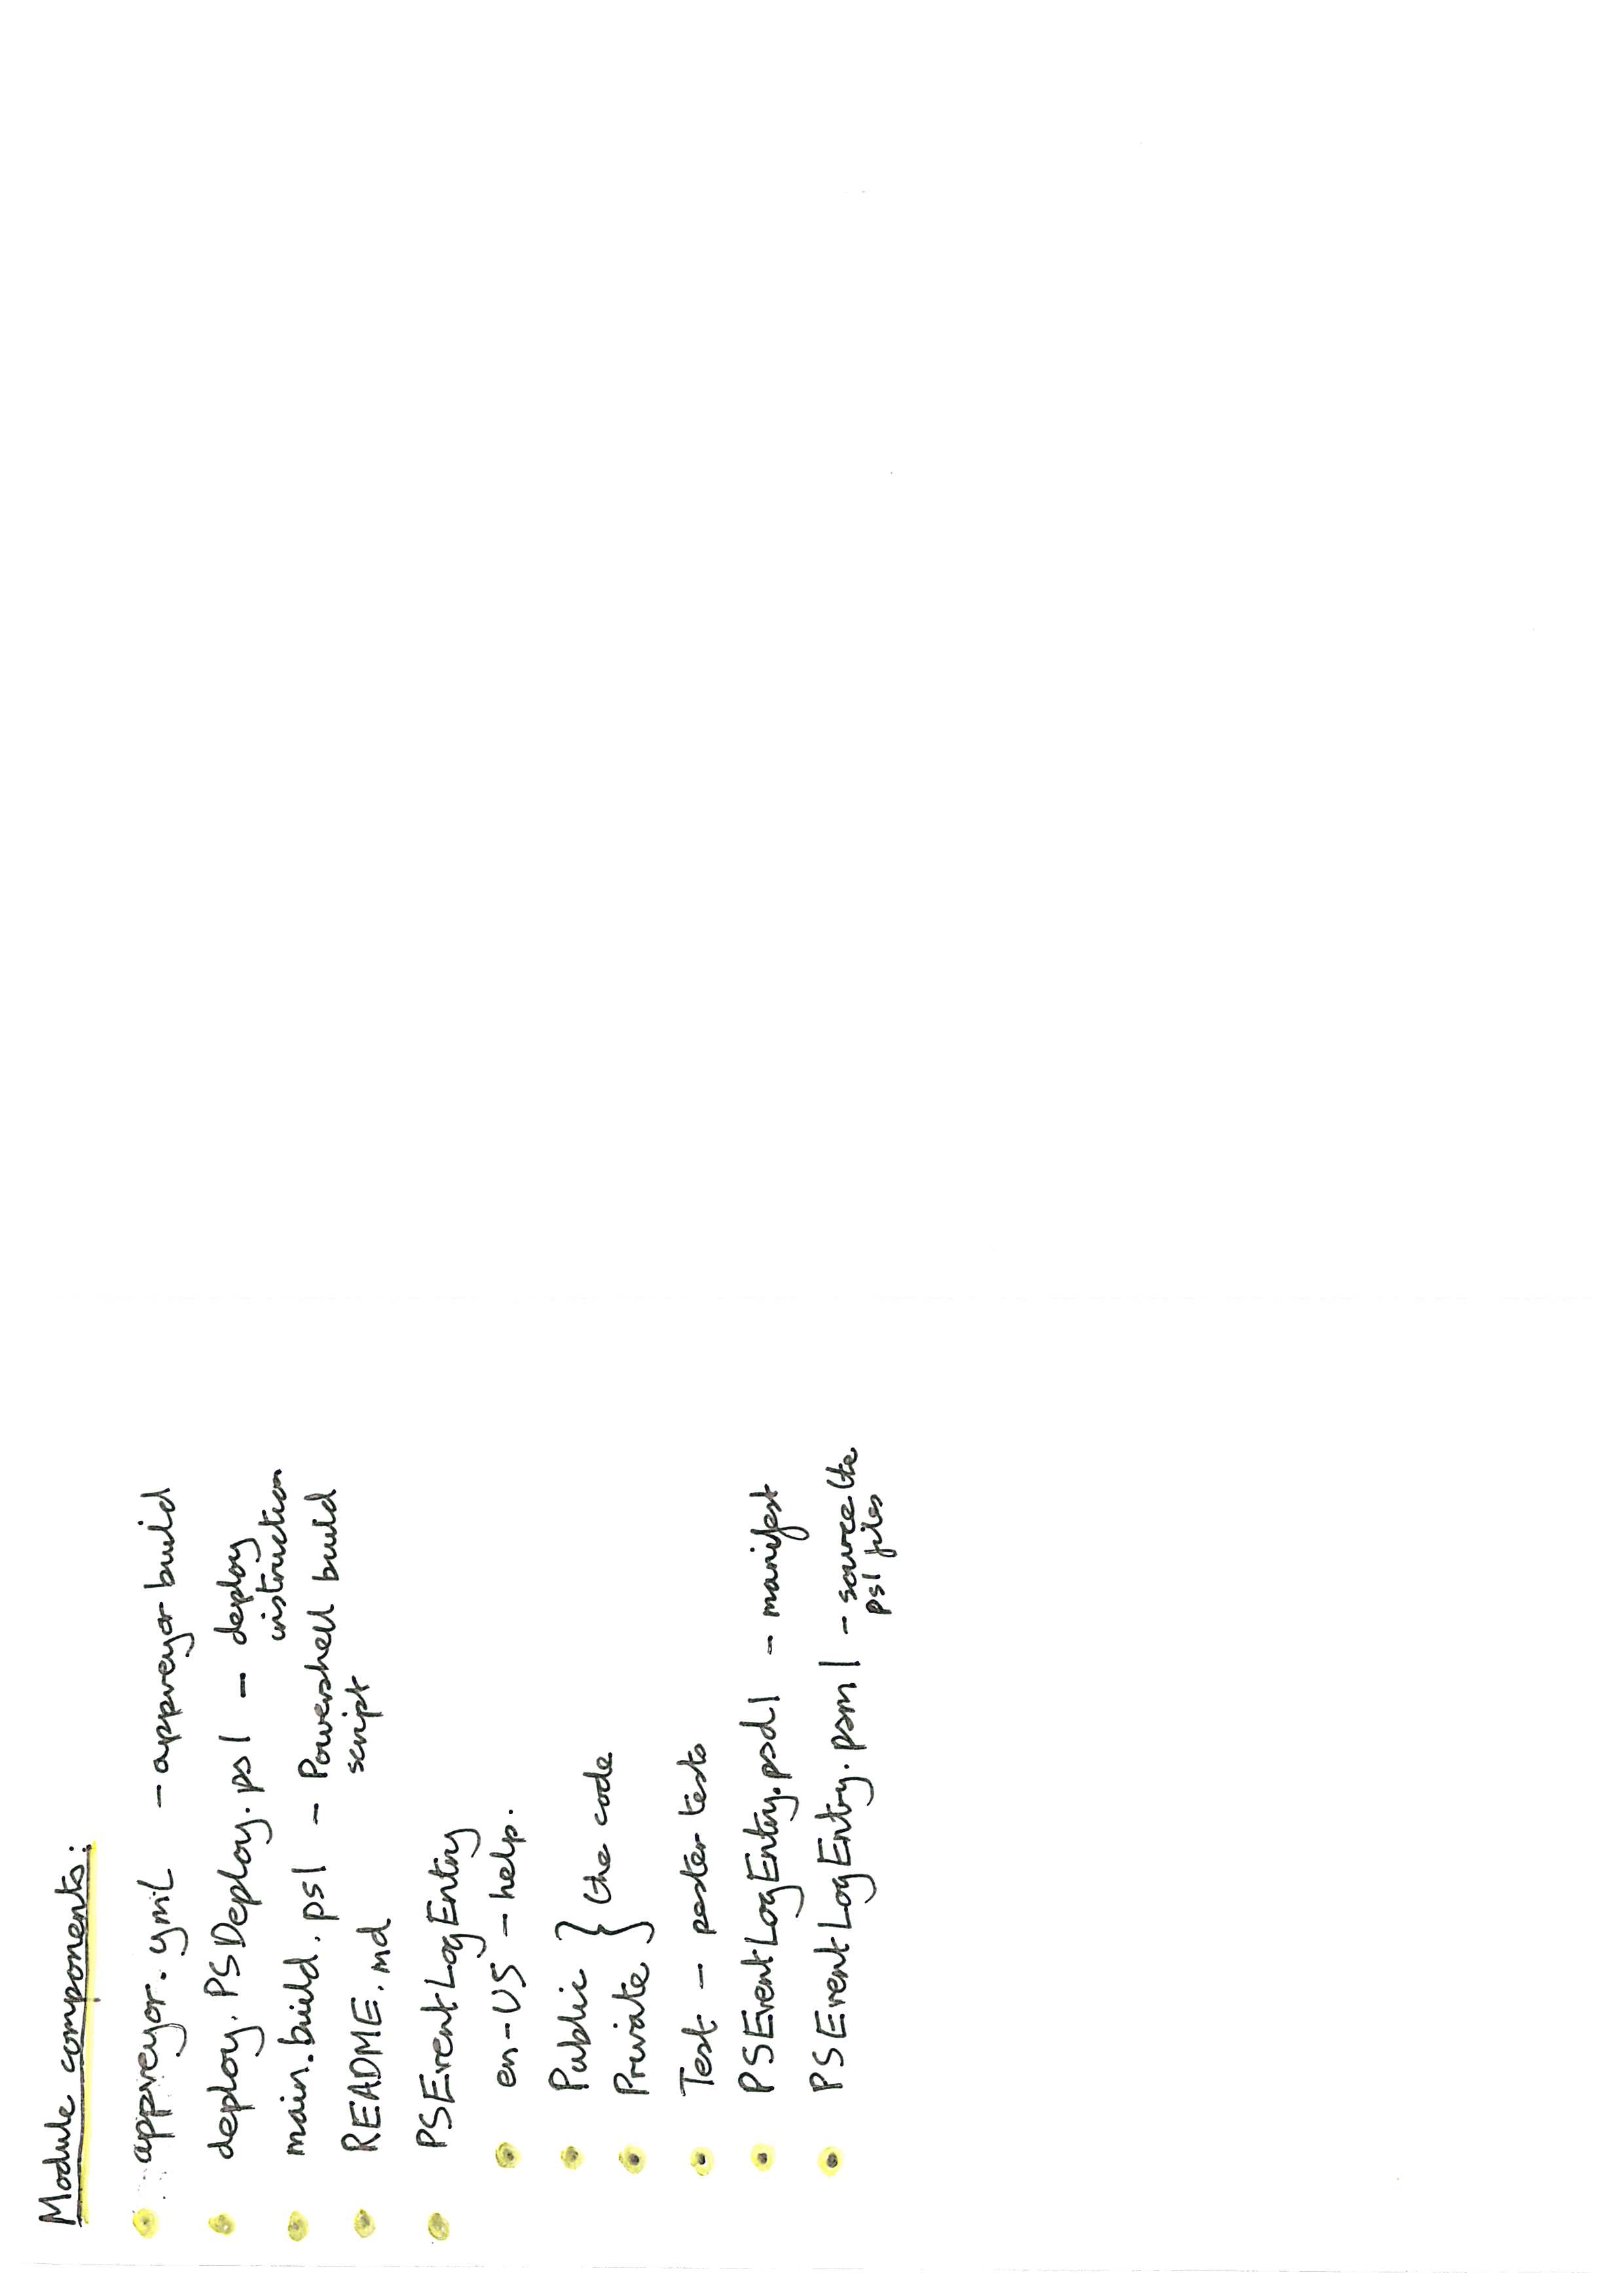 Module components:
appveyor.yml - appveyor build
deploy.PSDeploy.ps1 - deploy
instruction
main.build.ps1 - Powershell build
script
README.md
PSEventLogEntry
en-US - help.
Public
} the code
Private
Test - pester tests
PSEventLogEntry.psd1 - manifest
PSEventLogEntry.psm1 - source the
ps1 files